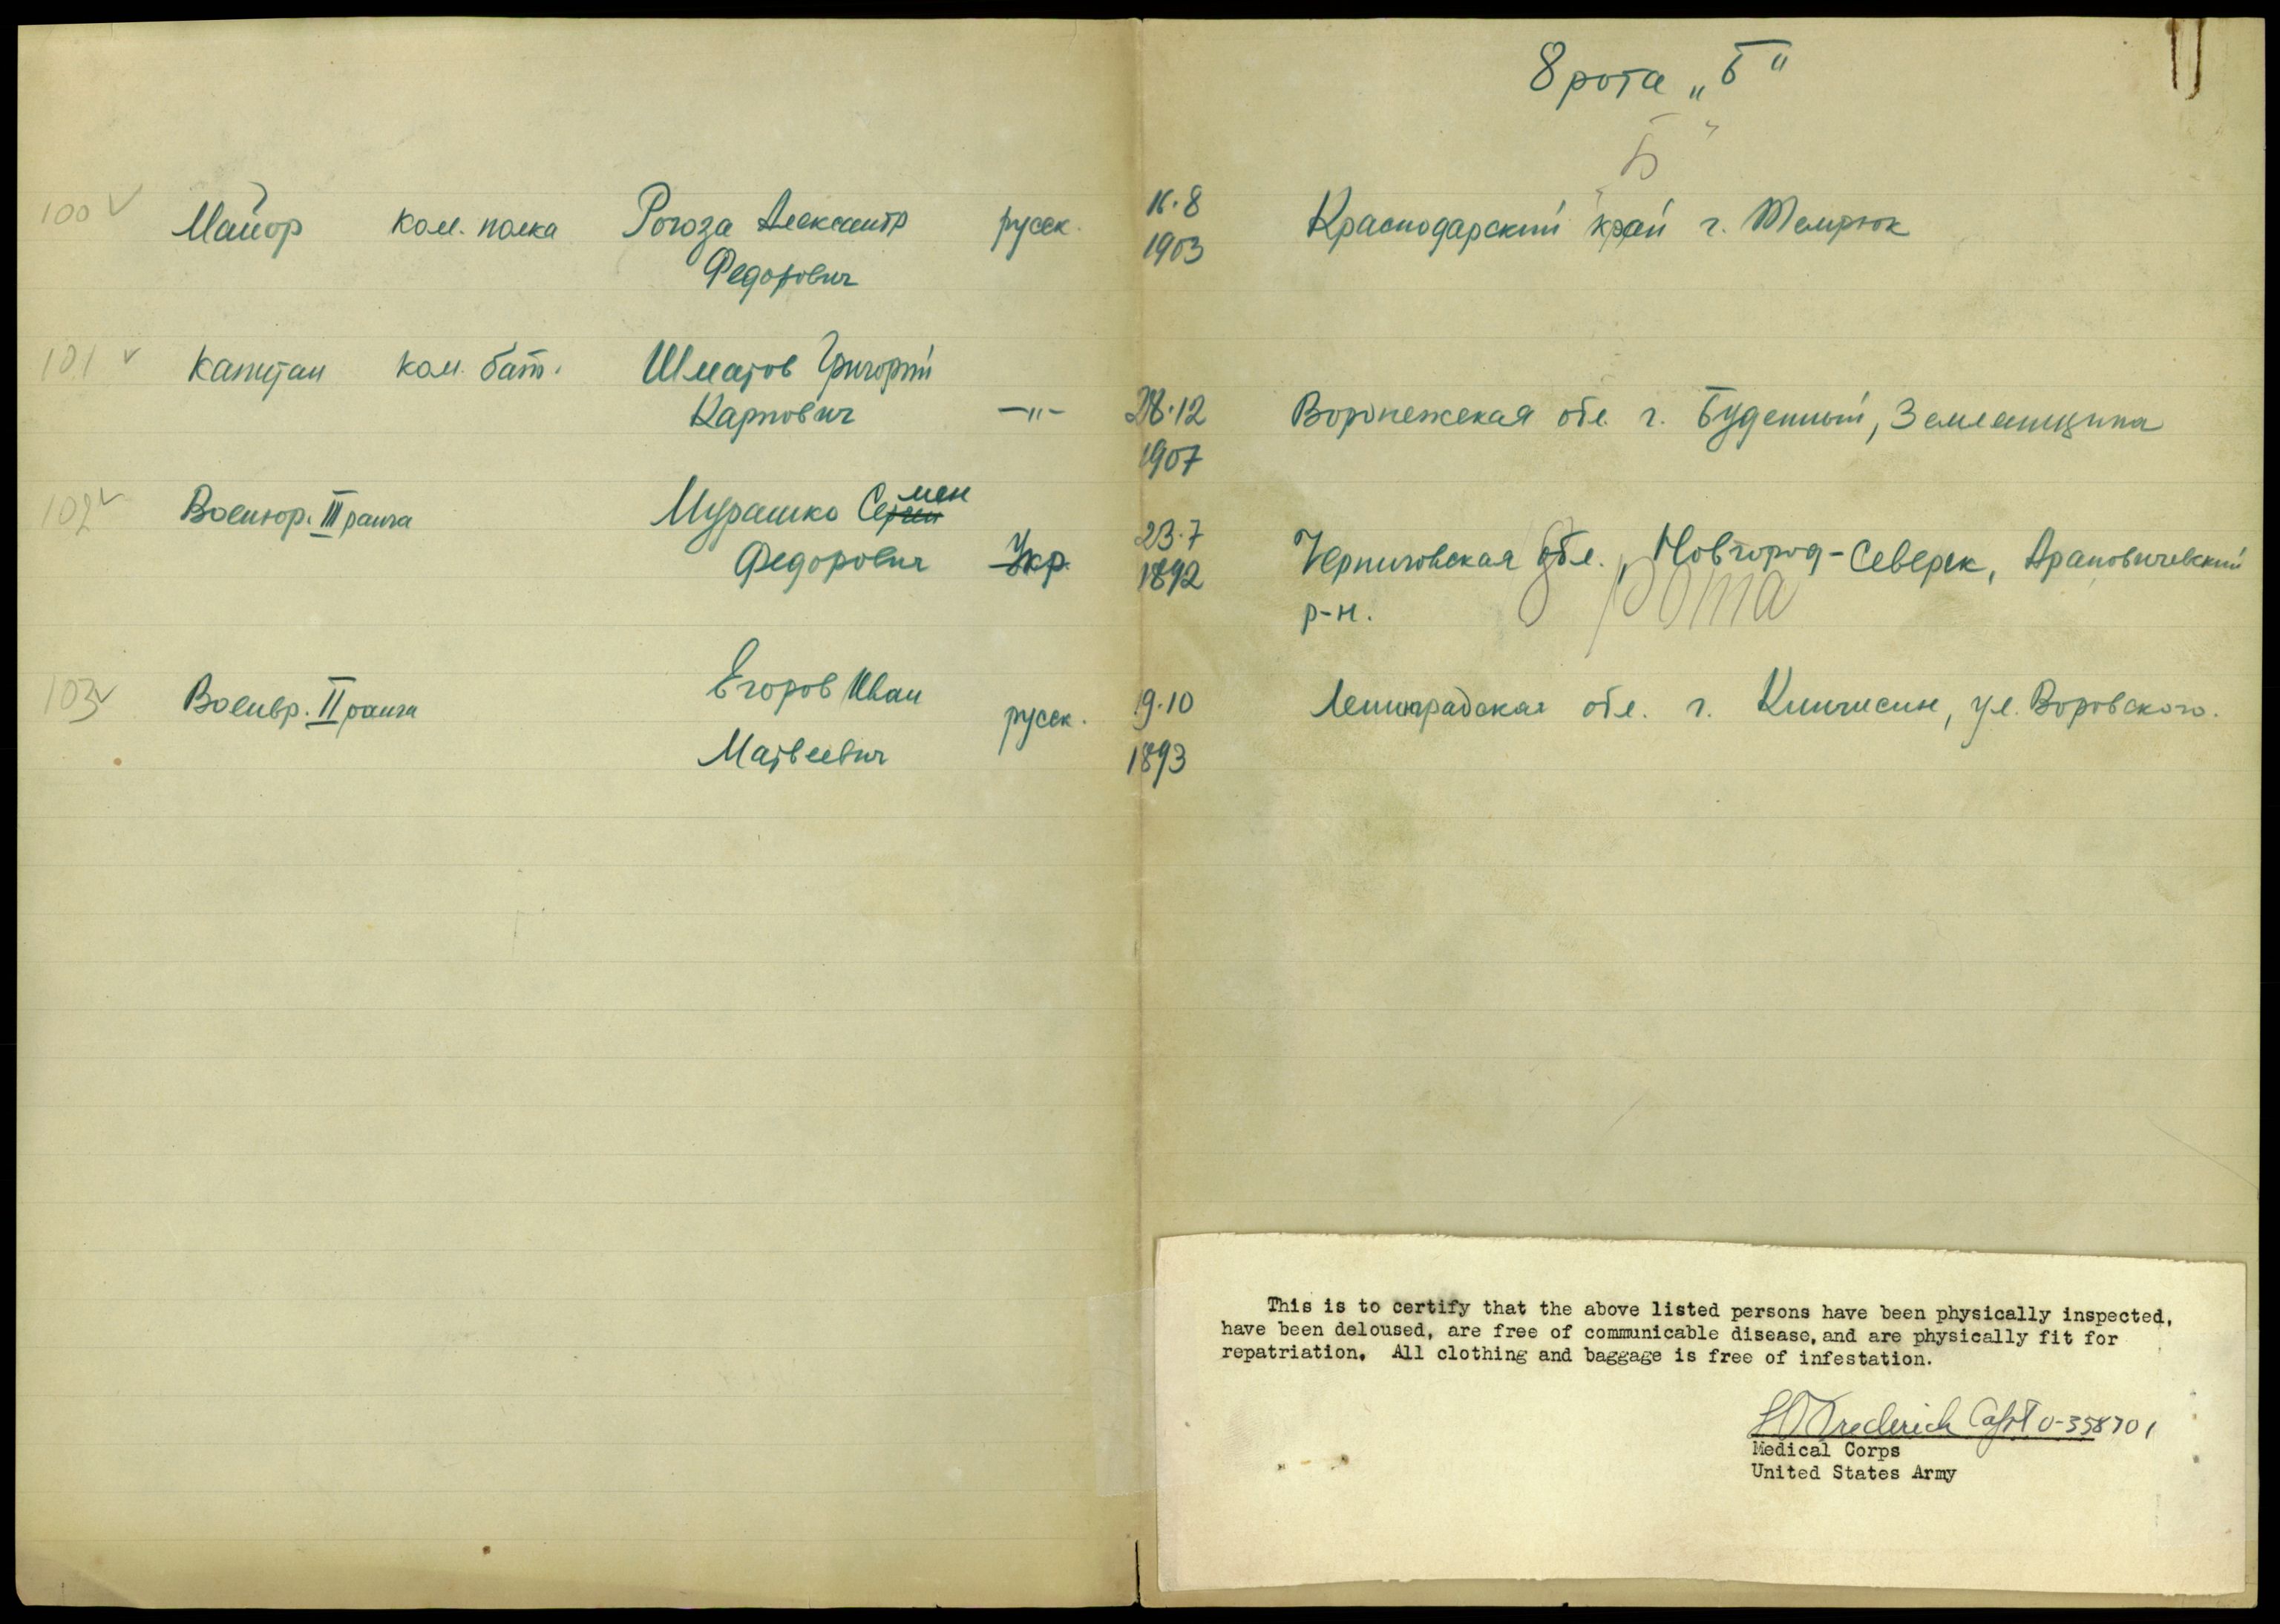 8 рота „Б“
Б“
100 ✓ Майор ком. полка Рогоза Александр русск. 16.8 Краснодарский край г. Темрюк
Федорович 1903
101 ✓ Капитан ком. бат. Шматов Григорий
Карпович —"— 28.12 Воронежская обл. г. Буденный, Землянщина
1907
102 ✓ Военюр. III ранга Мурашко Семен
Федорович Укр. 23.7 Черниговская обл., Новгород-Северск, Арановичевский
1892 р-н.
8 рота
103 ✓ Военвр. II ранга Егоров Иван русск. 19.10 Ленинградская обл. г. Кингисип, ул. Воровского.
Матвеевич 1893
This is to certify that the above listed persons have been physically inspected,
have been deloused, are free of communicable disease, and are physically fit for
repatriation. All clothing and baggage is free of infestation.
Frederick Capt 0-358701
Medical Corps
United States Army